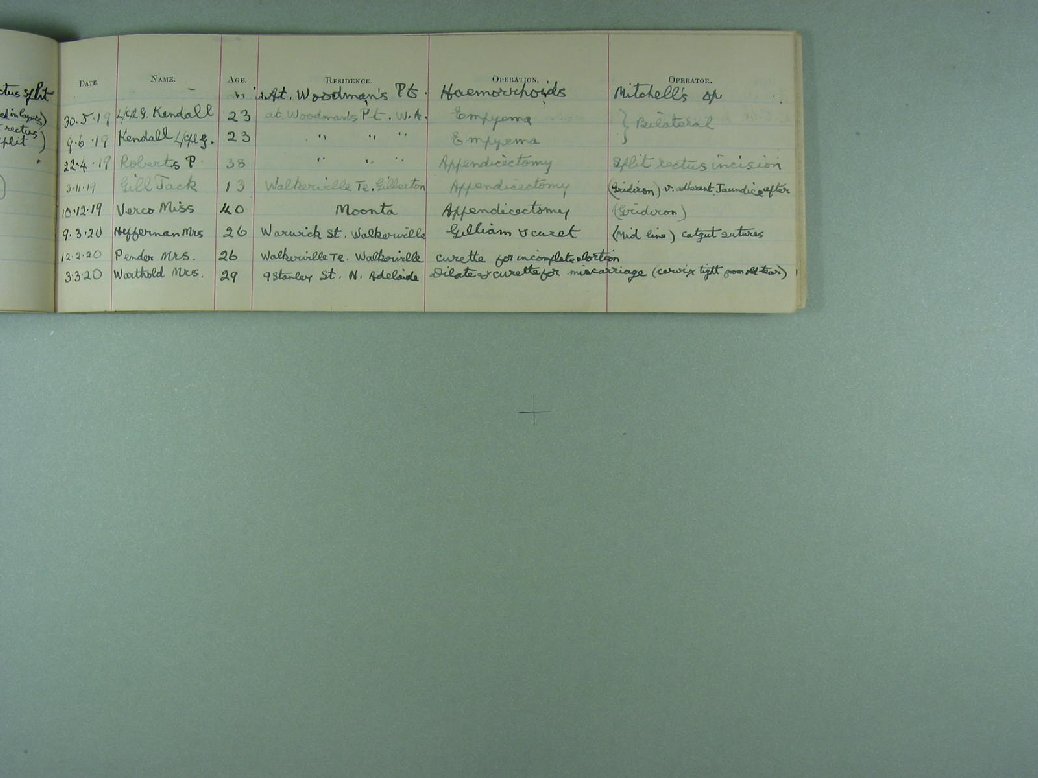 DATE NAME. AGE. RESIDENCE. OPERATION. OPERATOR.
At. Woodman's Pt. Haemorrhoids Mitchell's op
30.5.19 Kendall 23 at Woodman's Pt. W.A. Empyema } Bilateral
9.6.19 Kendall 23 " " " Empyema
22.4.19 Roberts P 33 " " " Appendicectomy Split rectus incision
Gill Jack 13 Walkerville Te. Gilberton Appendicectomy (Gridiron) v. adherent. Jaundice after
10.12.19 Verco Miss 40 Moonta Appendicectomy (Gridiron)
9.3.20 Heffernan Mrs 26 Warwick St. Walkerville Gilliam & curet (Mid line) catgut sutures
12.2.20 Pender Mrs. 26 Walkerville Te. Walkerville curette for incomplete abortion
3.3.20 Warthold Mrs. 29 9 Stanley St. N. Adelaide Dilate & curette for miscarriage (cervix tight from old tear)